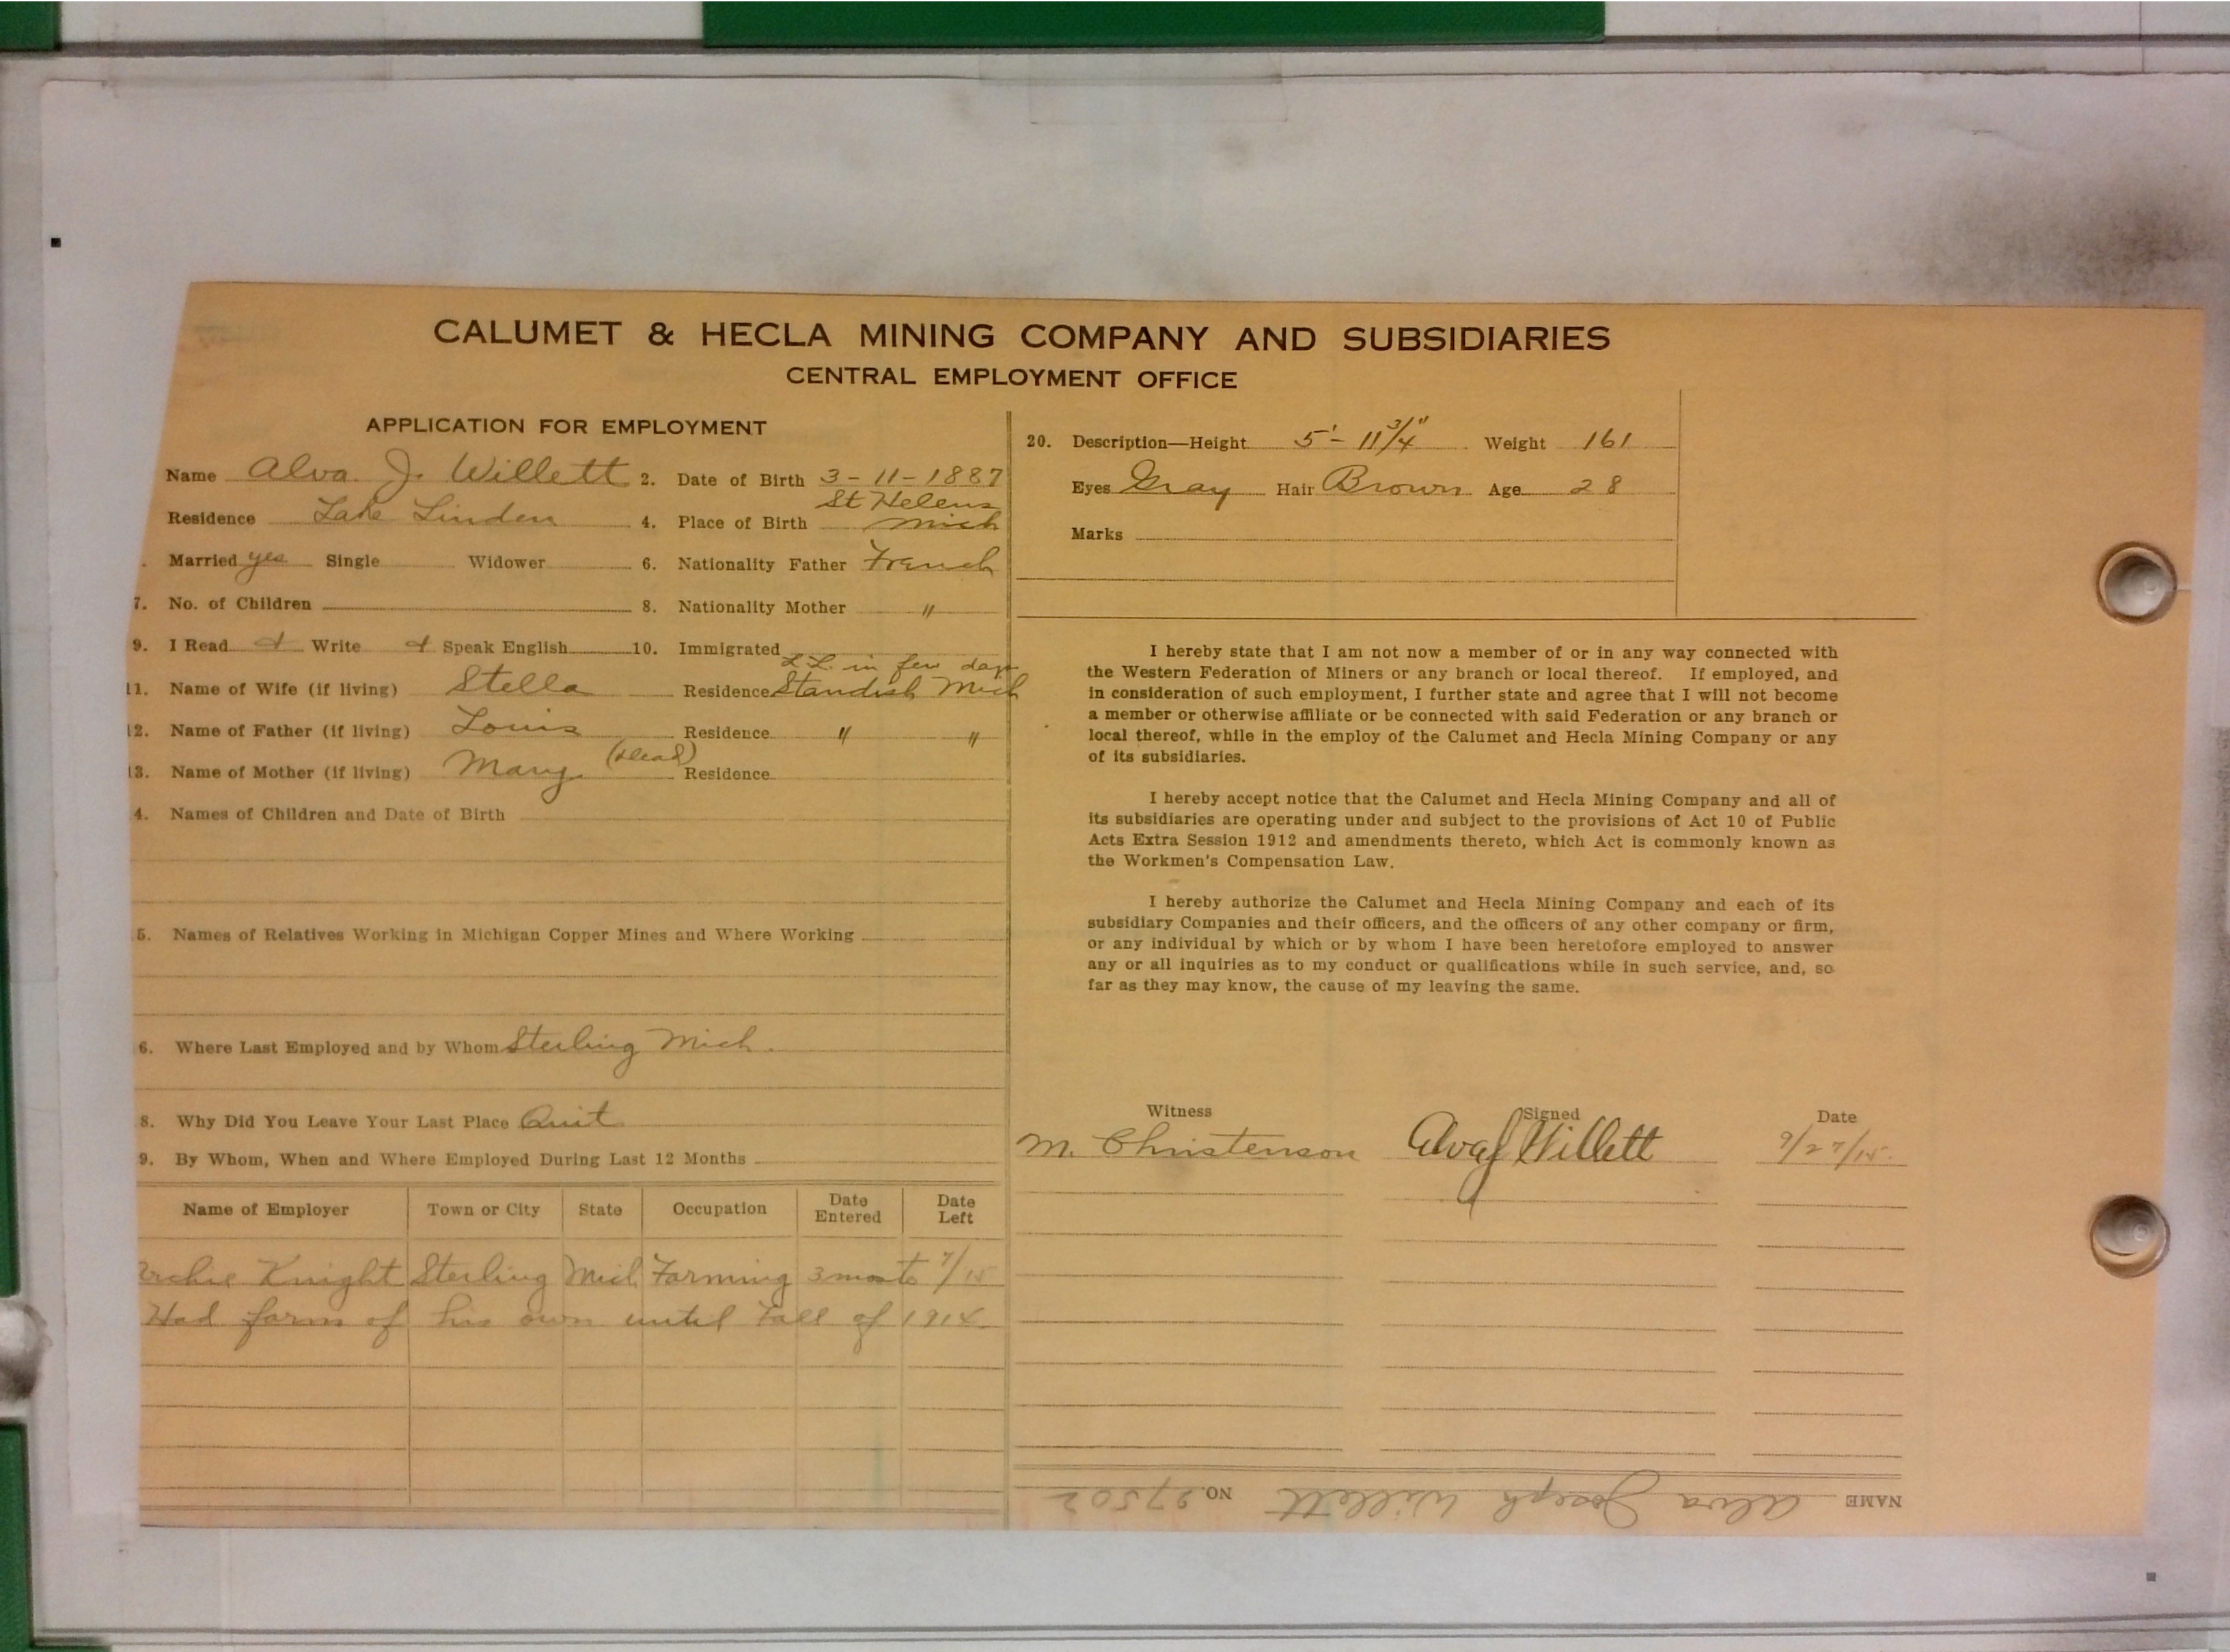 CALUMET & HECLA MINING COMPANY AND SUBSIDIARIES
CENTRAL EMPLOYMENT OFFICE
APPLICATION FOR EMPLOYMENT
Name Alva. J. Willett 2. Date of Birth 3-11-1887
St Helens
Residence Lake Linden 4. Place of Birth Mich
Married yes Single Widower 6. Nationality Father French
7. No. of Children 8. Nationality Mother "
9. I Read & Write & Speak English 10. Immigrated
L.L. in few days
11. Name of Wife (if living) Stella Residence Standish Mich
12. Name of Father (if living) Louis Residence " "
13. Name of Mother (if living) Mary (dead) Residence
4. Names of Children and Date of Birth
5. Names of Relatives Working in Michigan Copper Mines and Where Working
6. Where Last Employed and by Whom Sterling Mich.
8. Why Did You Leave Your Last Place Quit
9. By Whom, When and Where Employed During Last 12 Months
Name of Employer Town or City State Occupation Date Entered Date Left
Archie Knight Sterling Mich Farming 3 mos to 7/15
Had farm of his own until Fall of 1914.
20. Description—Height 5'-11 3/4" Weight 161
Eyes Gray Hair Brown Age 28
Marks
I hereby state that I am not now a member of or in any way connected with
the Western Federation of Miners or any branch or local thereof. If employed, and
in consideration of such employment, I further state and agree that I will not become
a member or otherwise affiliate or be connected with said Federation or any branch or
local thereof, while in the employ of the Calumet and Hecla Mining Company or any
of its subsidiaries.
I hereby accept notice that the Calumet and Hecla Mining Company and all of
its subsidiaries are operating under and subject to the provisions of Act 10 of Public
Acts Extra Session 1912 and amendments thereto, which Act is commonly known as
the Workmen's Compensation Law.
I hereby authorize the Calumet and Hecla Mining Company and each of its
subsidiary Companies and their officers, and the officers of any other company or firm,
or any individual by which or by whom I have been heretofore employed to answer
any or all inquiries as to my conduct or qualifications while in such service, and, so
far as they may know, the cause of my leaving the same.
Witness Signed Date
M. Christenson Alva J Willett 9/27/15.
NAME Alva Joseph Willett NO. 27502